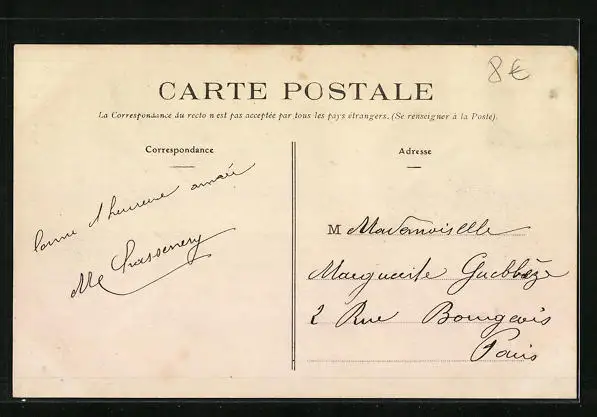 8€
CARTE POSTALE
La Correspondance du recto n'est pas acceptée par tous les pays étrangers. (Se renseigner à la Poste).
Correspondance
Adresse
bonne & heureuse année
M Mademoiselle
Marguerite
2 Rue Bourgeois
Paris